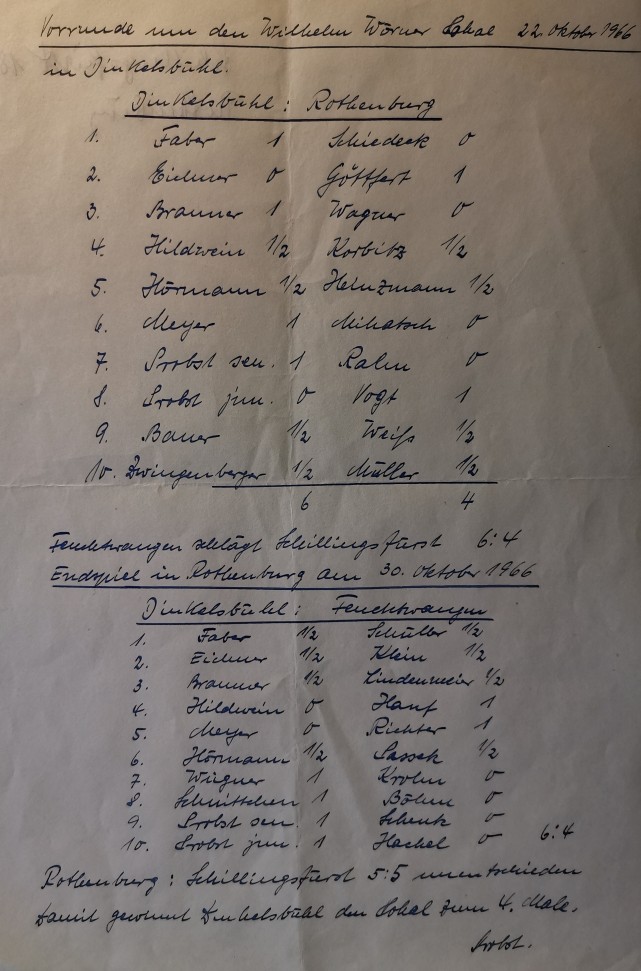 Vorrunde um den Wilhelm Wörner Pokal 22. Oktober 1966
in Dinkelsbühl.
Dinkelsbühl : Rothenburg
1. Faber 1 Schiedeck 0
2. Eichner 0 Göttfert 1
3. Brauner 1 Wagner 0
4. Hildwein 1/2 Korbitz 1/2
5. Hörmann 1/2 Heinzmann 1/2
6. Meyer 1 Mihatsch 0
7. Probst sen. 1 Rahn 0
8. Probst jun. 0 Vogt 1
9. Bauer 1/2 Weiß 1/2
10. Zwingenberger 1/2 Müller 1/2
6 4
Feuchtwangen schlägt Schillingsfürst 6:4
Endspiel in Rothenburg am 30. Oktober 1966
Dinkelsbühl : Feuchtwangen
1. Faber 1/2 Schüller 1/2
2. Eichner 1/2 Klein 1/2
3. Brauner 1/2 Lindenmeier 1/2
4. Hildwein 0 Hanf 1
5. Meyer 0 Richter 1
6. Hörmann 1/2 Sassek 1/2
7. Wügner 1 Krohn 0
8. Schnittchen 1 Böhm 0
9. Probst sen. 1 Schenk 0
10. Probst jun. 1 Hachel 0 6:4
Rothenburg : Schillingsfürst 5:5 unentschieden
Damit gewinnt Dinkelsbühl den Pokal zum 4. Male.
Probst.